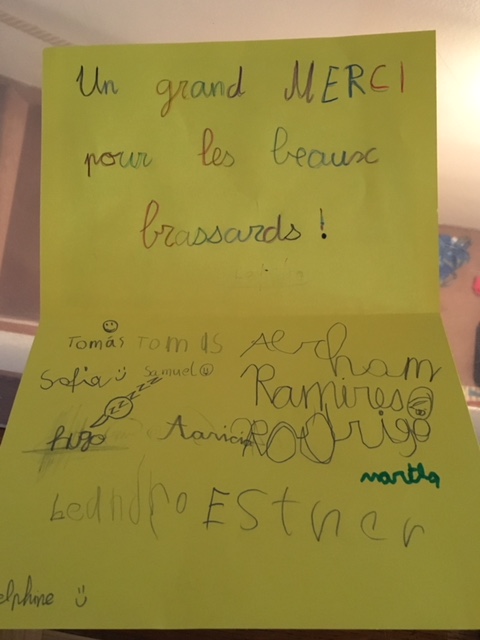 Un grand MERCI
pour les beaux
brassards !
Tomás Tomás Avraham
Sofia Samuel Ramires
zzz
Hugo Aaricia Rodrigo
martha
Leandro Esther
elphine